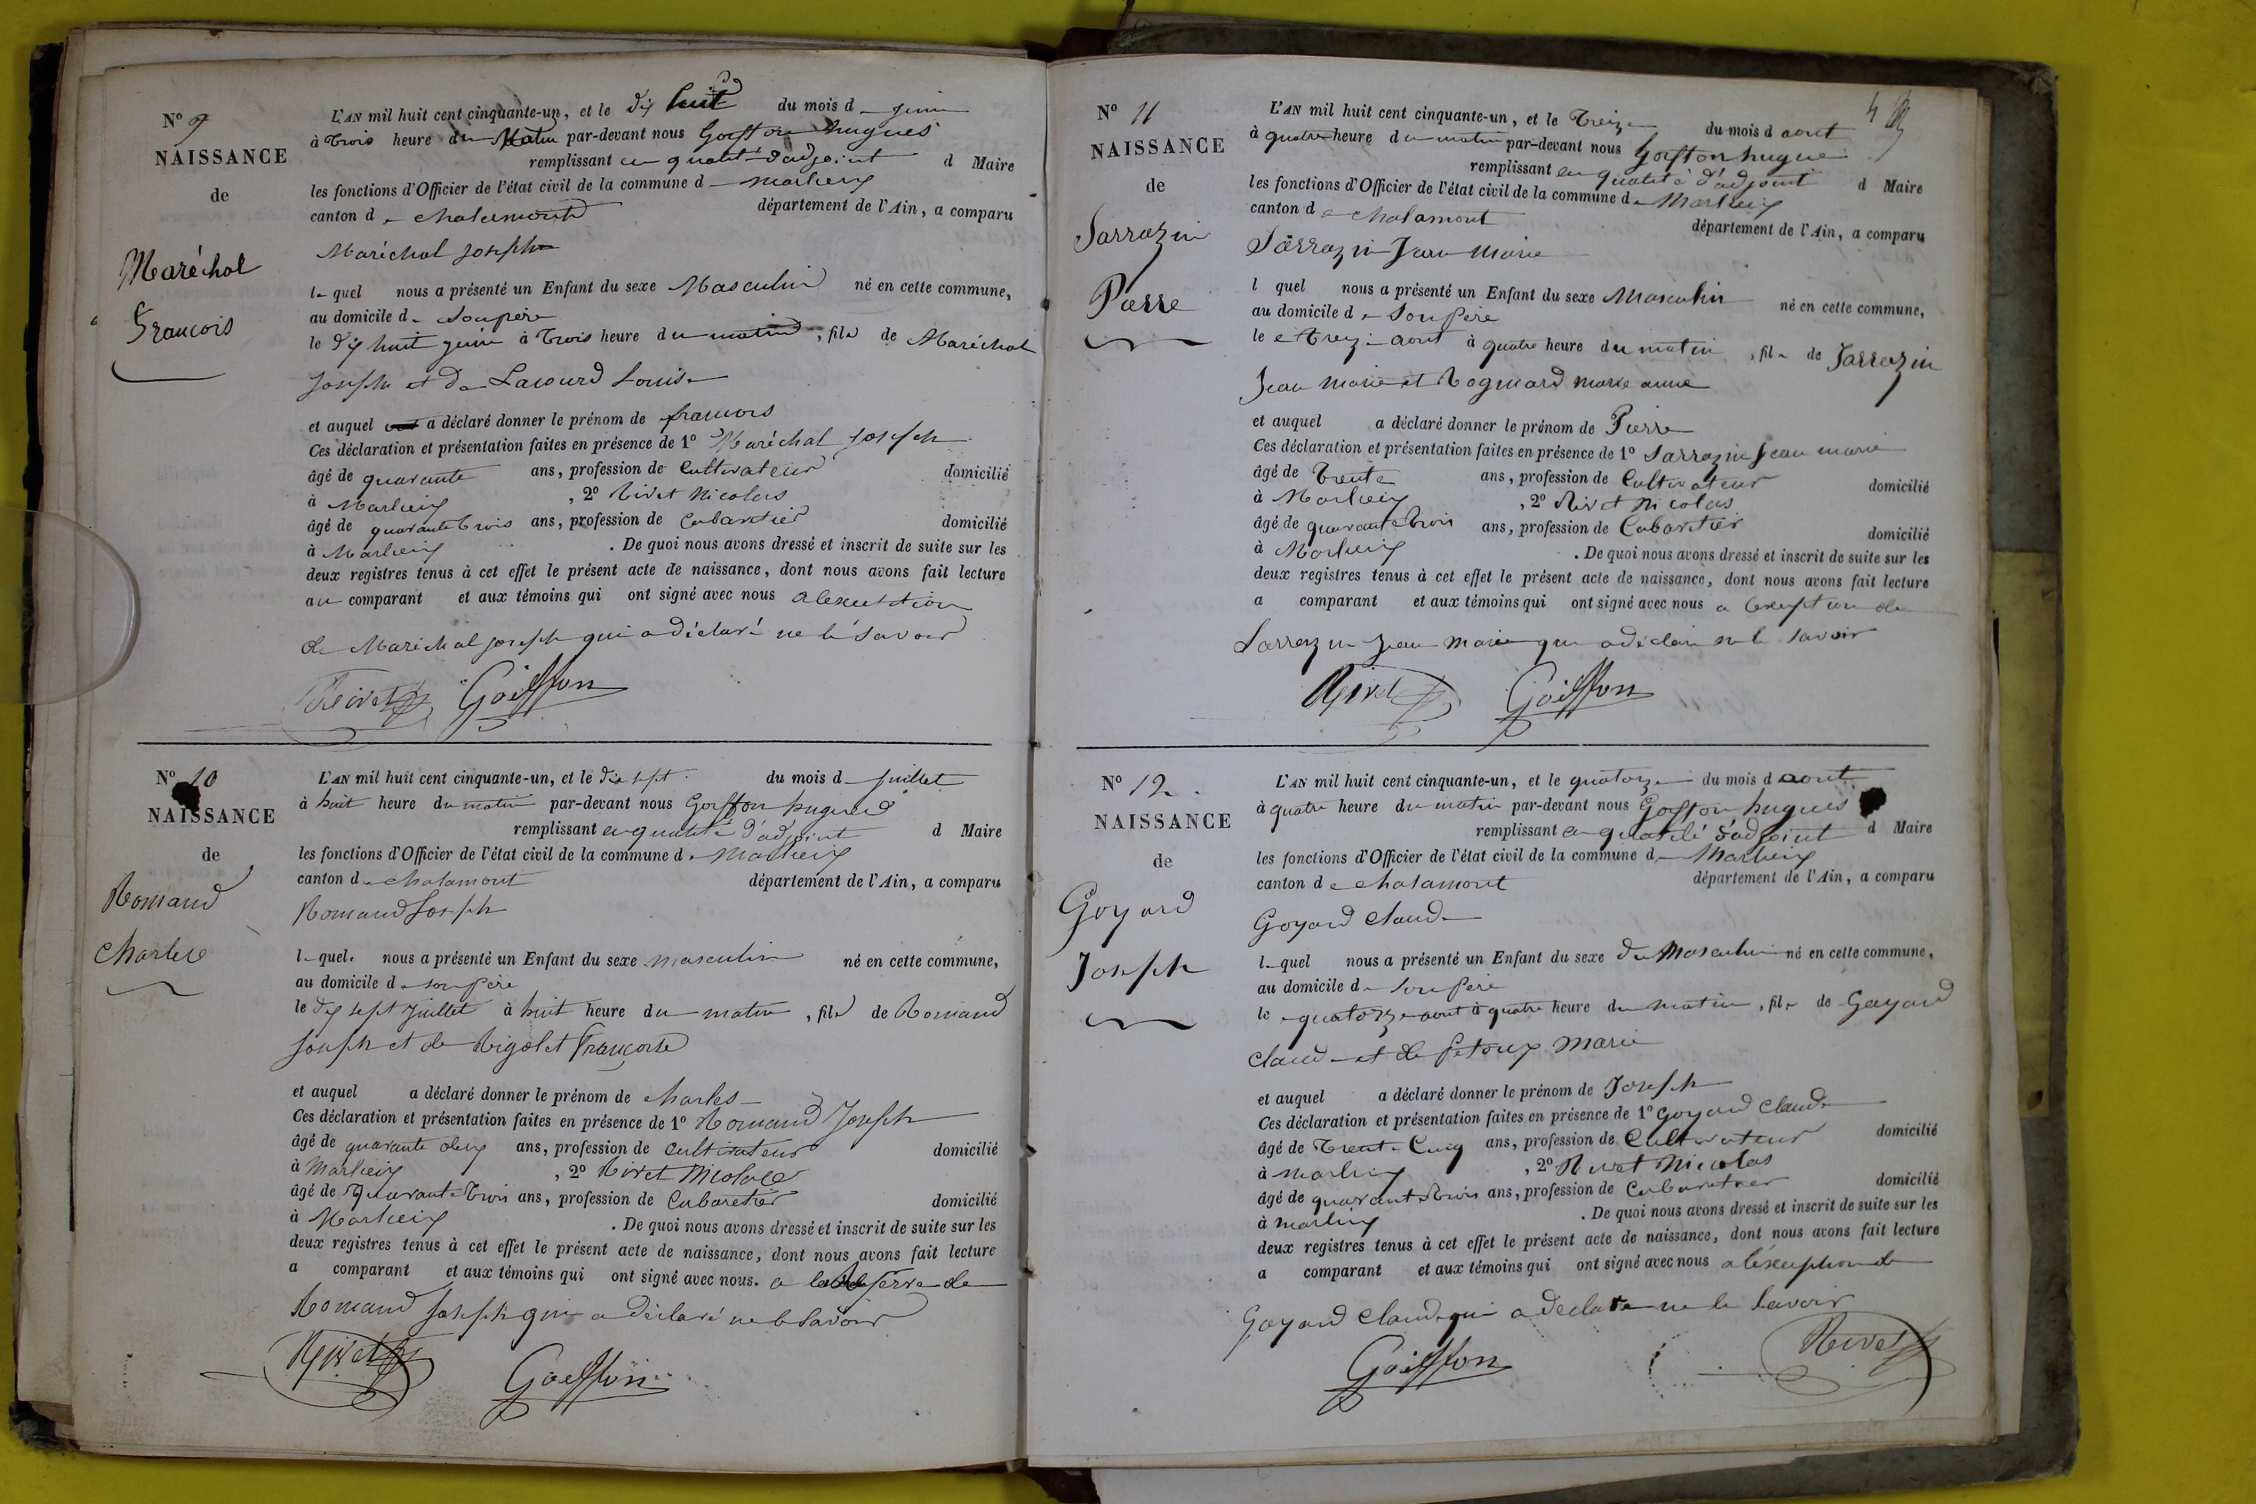 N° 9
NAISSANCE
de
Maréchal
François
L'AN mil huit cent cinquante-un, et le dix huit du mois de juin
à trois heure du Matin par-devant nous Goiffon hugues
remplissant en qualité d'adjoint d Maire
les fonctions d'Officier de l'état civil de la commune de Marlieux
canton de chalamont département de l'Ain, a comparu
Maréchal joseph
le quel nous a présenté un Enfant du sexe Masculin né en cette commune,
au domicile de son père
le dix huit juin à trois heure du matin, fils de Maréchal
joseph et de Lacourd Louise
et auquel a déclaré donner le prénom de françois
Ces déclaration et présentation faites en présence de 1° Maréchal joseph
âgé de quarante ans, profession de Cultivateur domicilié
à Marlieux, 2° Rivet Nicolas
âgé de quarante trois ans, profession de Cabaretier domicilié
à Marlieux. De quoi nous avons dressé et inscrit de suite sur les
deux registres tenus à cet effet le présent acte de naissance, dont nous avons fait lecture
au comparant et aux témoins qui ont signé avec nous
de Maréchal joseph qui a déclaré ne le savoir
Rivet Goiffon
N° 10
NAISSANCE
de
Romand
Charles
L'AN mil huit cent cinquante-un, et le dix sept du mois de juillet
à huit heure du matin par-devant nous Goiffon hugues
remplissant en qualité d'adjoint d Maire
les fonctions d'Officier de l'état civil de la commune de Marlieux
canton de chalamont département de l'Ain, a comparu
Romand Joseph
le quel. nous a présenté un Enfant du sexe masculin né en cette commune,
au domicile de son père
le dix sept juillet à huit heure du matin, fils de Romand
Joseph et de Rigolet Françoise
et auquel a déclaré donner le prénom de charles
Ces déclaration et présentation faites en présence de 1° Romand Joseph
âgé de quarante deux ans, profession de cultivateur domicilié
à Marlieux, 2° Rivet Nicolas
âgé de quarante trois ans, profession de Cabaretier domicilié
à Marlieux. De quoi nous avons dressé et inscrit de suite sur les
deux registres tenus à cet effet le présent acte de naissance, dont nous avons fait lecture
a comparant et aux témoins qui ont signé avec nous. a de
Romand Joseph qui a déclaré ne le savoir
Rivet Goiffon
4
N° 11
NAISSANCE
de
Sarrazin
Pierre
L'AN mil huit cent cinquante-un, et le treize du mois d aout
à quatre heure du matin par-devant nous Goiffon hugues
remplissant en qualité d'adjoint d Maire
les fonctions d'Officier de l'état civil de la commune de Marlieux
canton de chalamont département de l'Ain, a comparu
Sarrazin Jean Marie
l quel nous a présenté un Enfant du sexe Masculin né en cette commune,
au domicile de son père
le treize aout à quatre heure du matin, fils de Sarrazin
Jean Marie et Rognard marie anne
et auquel a déclaré donner le prénom de Pierre
Ces déclaration et présentation faites en présence de 1° Sarrazin Jean marie
âgé de trente ans, profession de Cultivateur domicilié
à Marlieux, 2° Rivet Nicolas
âgé de quarante trois ans, profession de Cabaretier domicilié
à Marlieux. De quoi nous avons dressé et inscrit de suite sur les
deux registres tenus à cet effet le présent acte de naissance, dont nous avons fait lecture
a comparant et aux témoins qui ont signé avec nous a lexeption de
Sarrazin Jean Marie qui a déclaré ne le savoir
Rivet Goiffon
N° 12.
NAISSANCE
de
Goyard
Joseph
L'AN mil huit cent cinquante-un, et le quatorze du mois d aout
à quatre heure du matin par-devant nous Goiffon hugues
remplissant en qualité d'adjoint d Maire
les fonctions d'Officier de l'état civil de la commune de Marlieux
canton de chalamont département de l'Ain, a comparu
Goyard Claude
le quel nous a présenté un Enfant du sexe du Masculin né en cette commune,
au domicile de son père
le quatorze aout à quatre heure du matin, fils de Goyard
claude et de Petoux Marie
et auquel a déclaré donner le prénom de Joseph
Ces déclaration et présentation faites en présence de 1° Goyard Claude
âgé de trente cinq ans, profession de Cultivateur domicilié
à marlieux, 2° Rivet Nicolas
âgé de quarante trois ans, profession de Cabaretier domicilié
à marlieux. De quoi nous avons dressé et inscrit de suite sur les
deux registres tenus à cet effet le présent acte de naissance, dont nous avons fait lecture
a comparant et aux témoins qui ont signé avec nous a léxeuption de
Goyard Claude qui a déclare ne le savoir
Goiffon Rivet